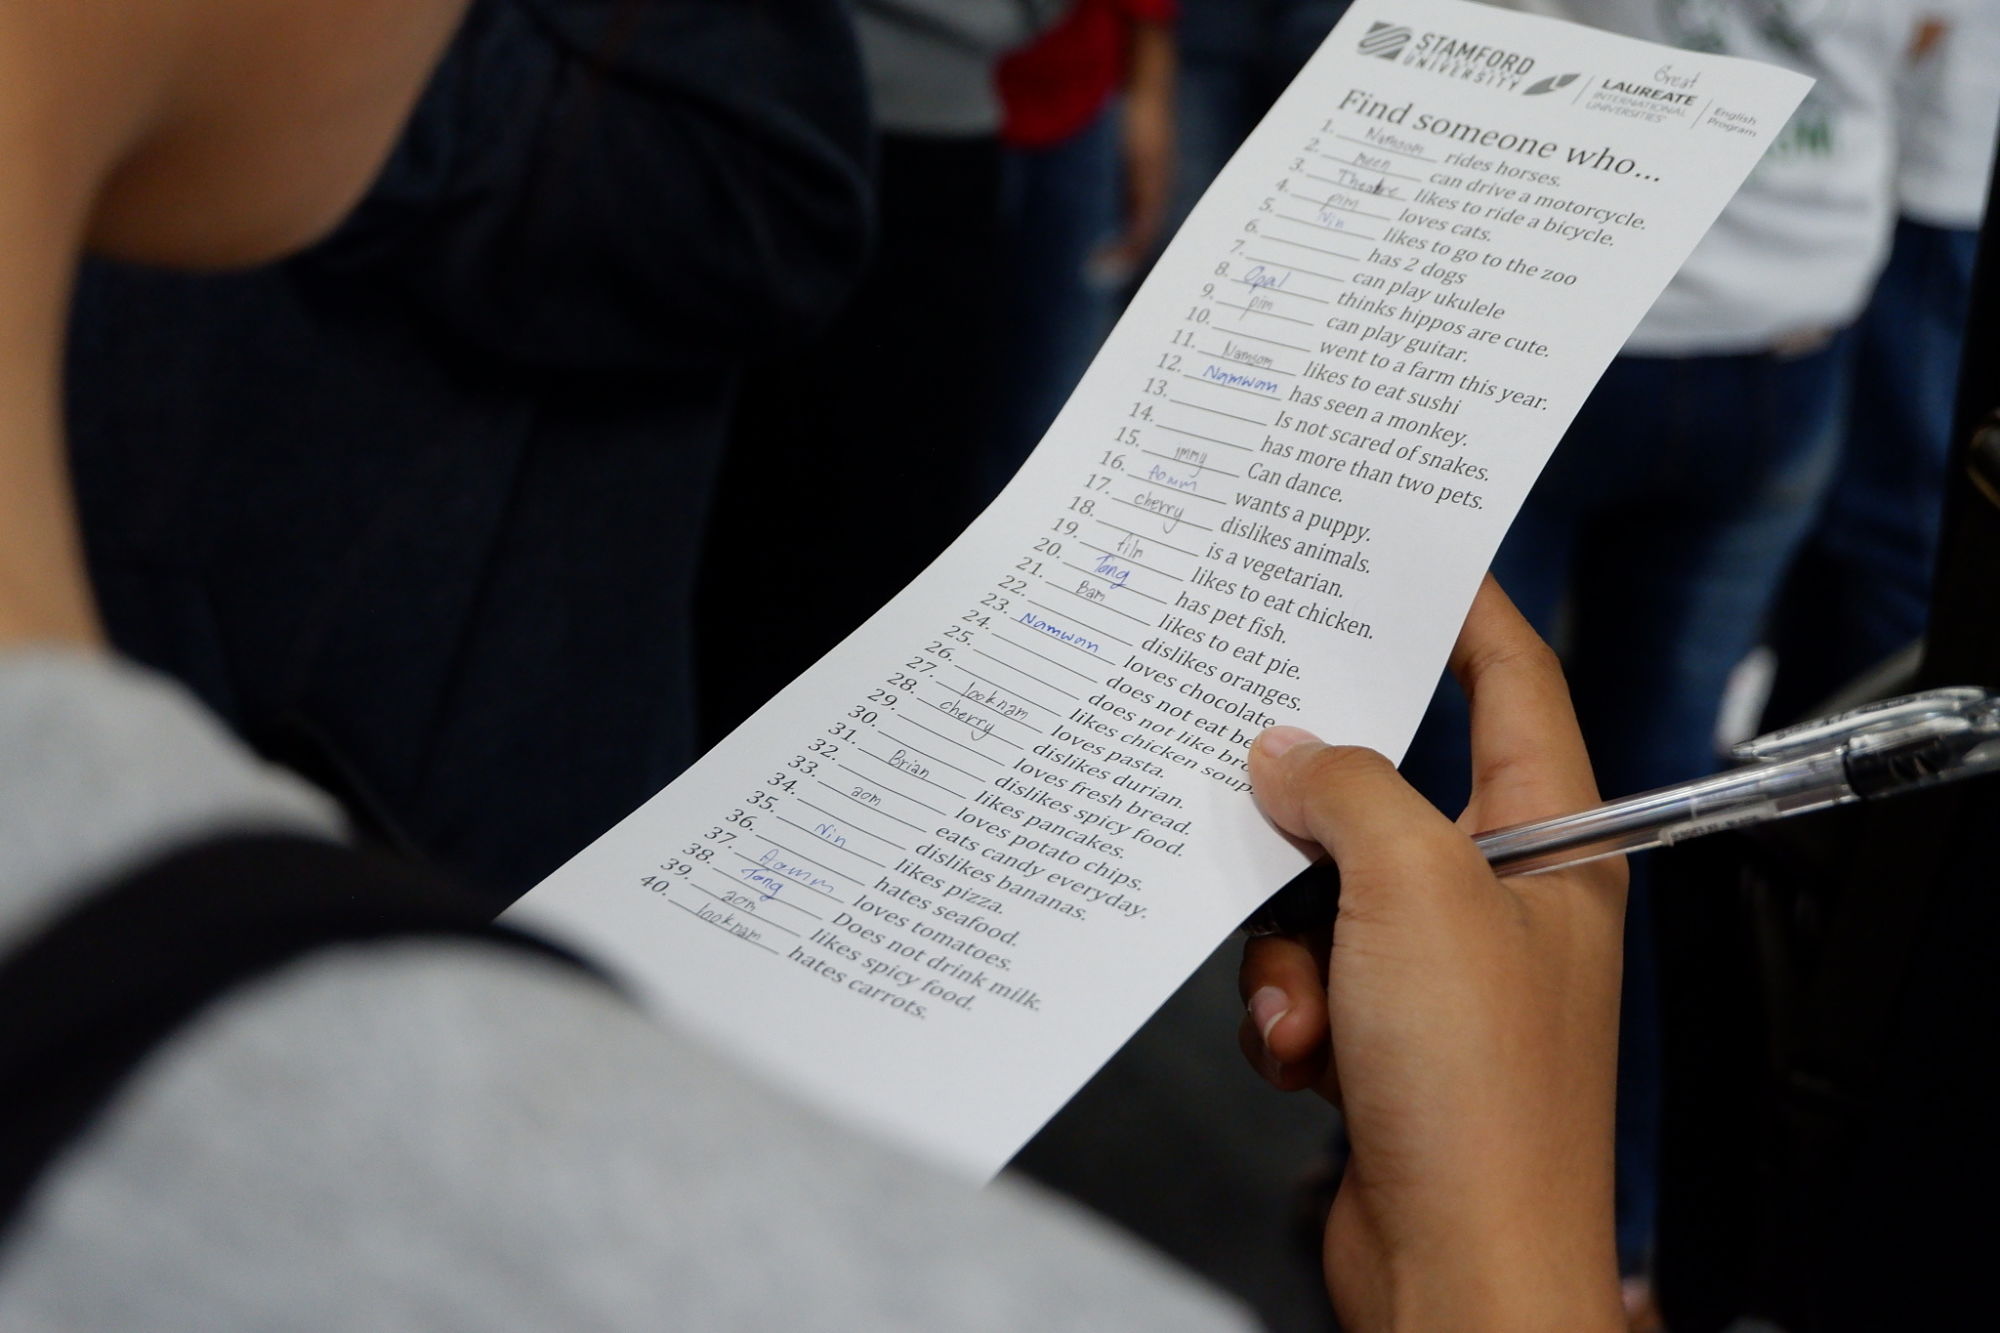 STAMFORD
UNIVERSITY
Great
LAUREATE
INTERNATIONAL
UNIVERSITIES
English
Program
Find someone who...
1. Namsom rides horses.
2. Been can drive a motorcycle.
3. Theatre likes to ride a bicycle.
4. pim loves cats.
5. Nin likes to go to the zoo
6. has 2 dogs
7. can play ukulele
8. Opal thinks hippos are cute.
9. pim can play guitar.
10. went to a farm this year.
11. Namsom likes to eat sushi
12. Namwan has seen a monkey.
13. Is not scared of snakes.
14. has more than two pets.
15. immy Can dance.
16. Aomm wants a puppy.
17. cherry dislikes animals.
18. is a vegetarian.
19. film likes to eat chicken.
20. Tang has pet fish.
21. Bam likes to eat pie.
22. dislikes oranges.
23. Namwan loves chocolate.
24. does not eat
25. does not like
26. likes chicken soup.
27. looknam loves pasta.
28. cherry dislikes durian.
29. loves fresh bread.
30. dislikes spicy food.
31. Brian likes pancakes.
32. loves potato chips.
33. aom eats candy everyday.
34. dislikes bananas.
35. Nin likes pizza.
36. hates seafood.
37. Aomm loves tomatoes.
38. Tang Does not drink milk.
39. aom likes spicy food.
40. looknam hates carrots.